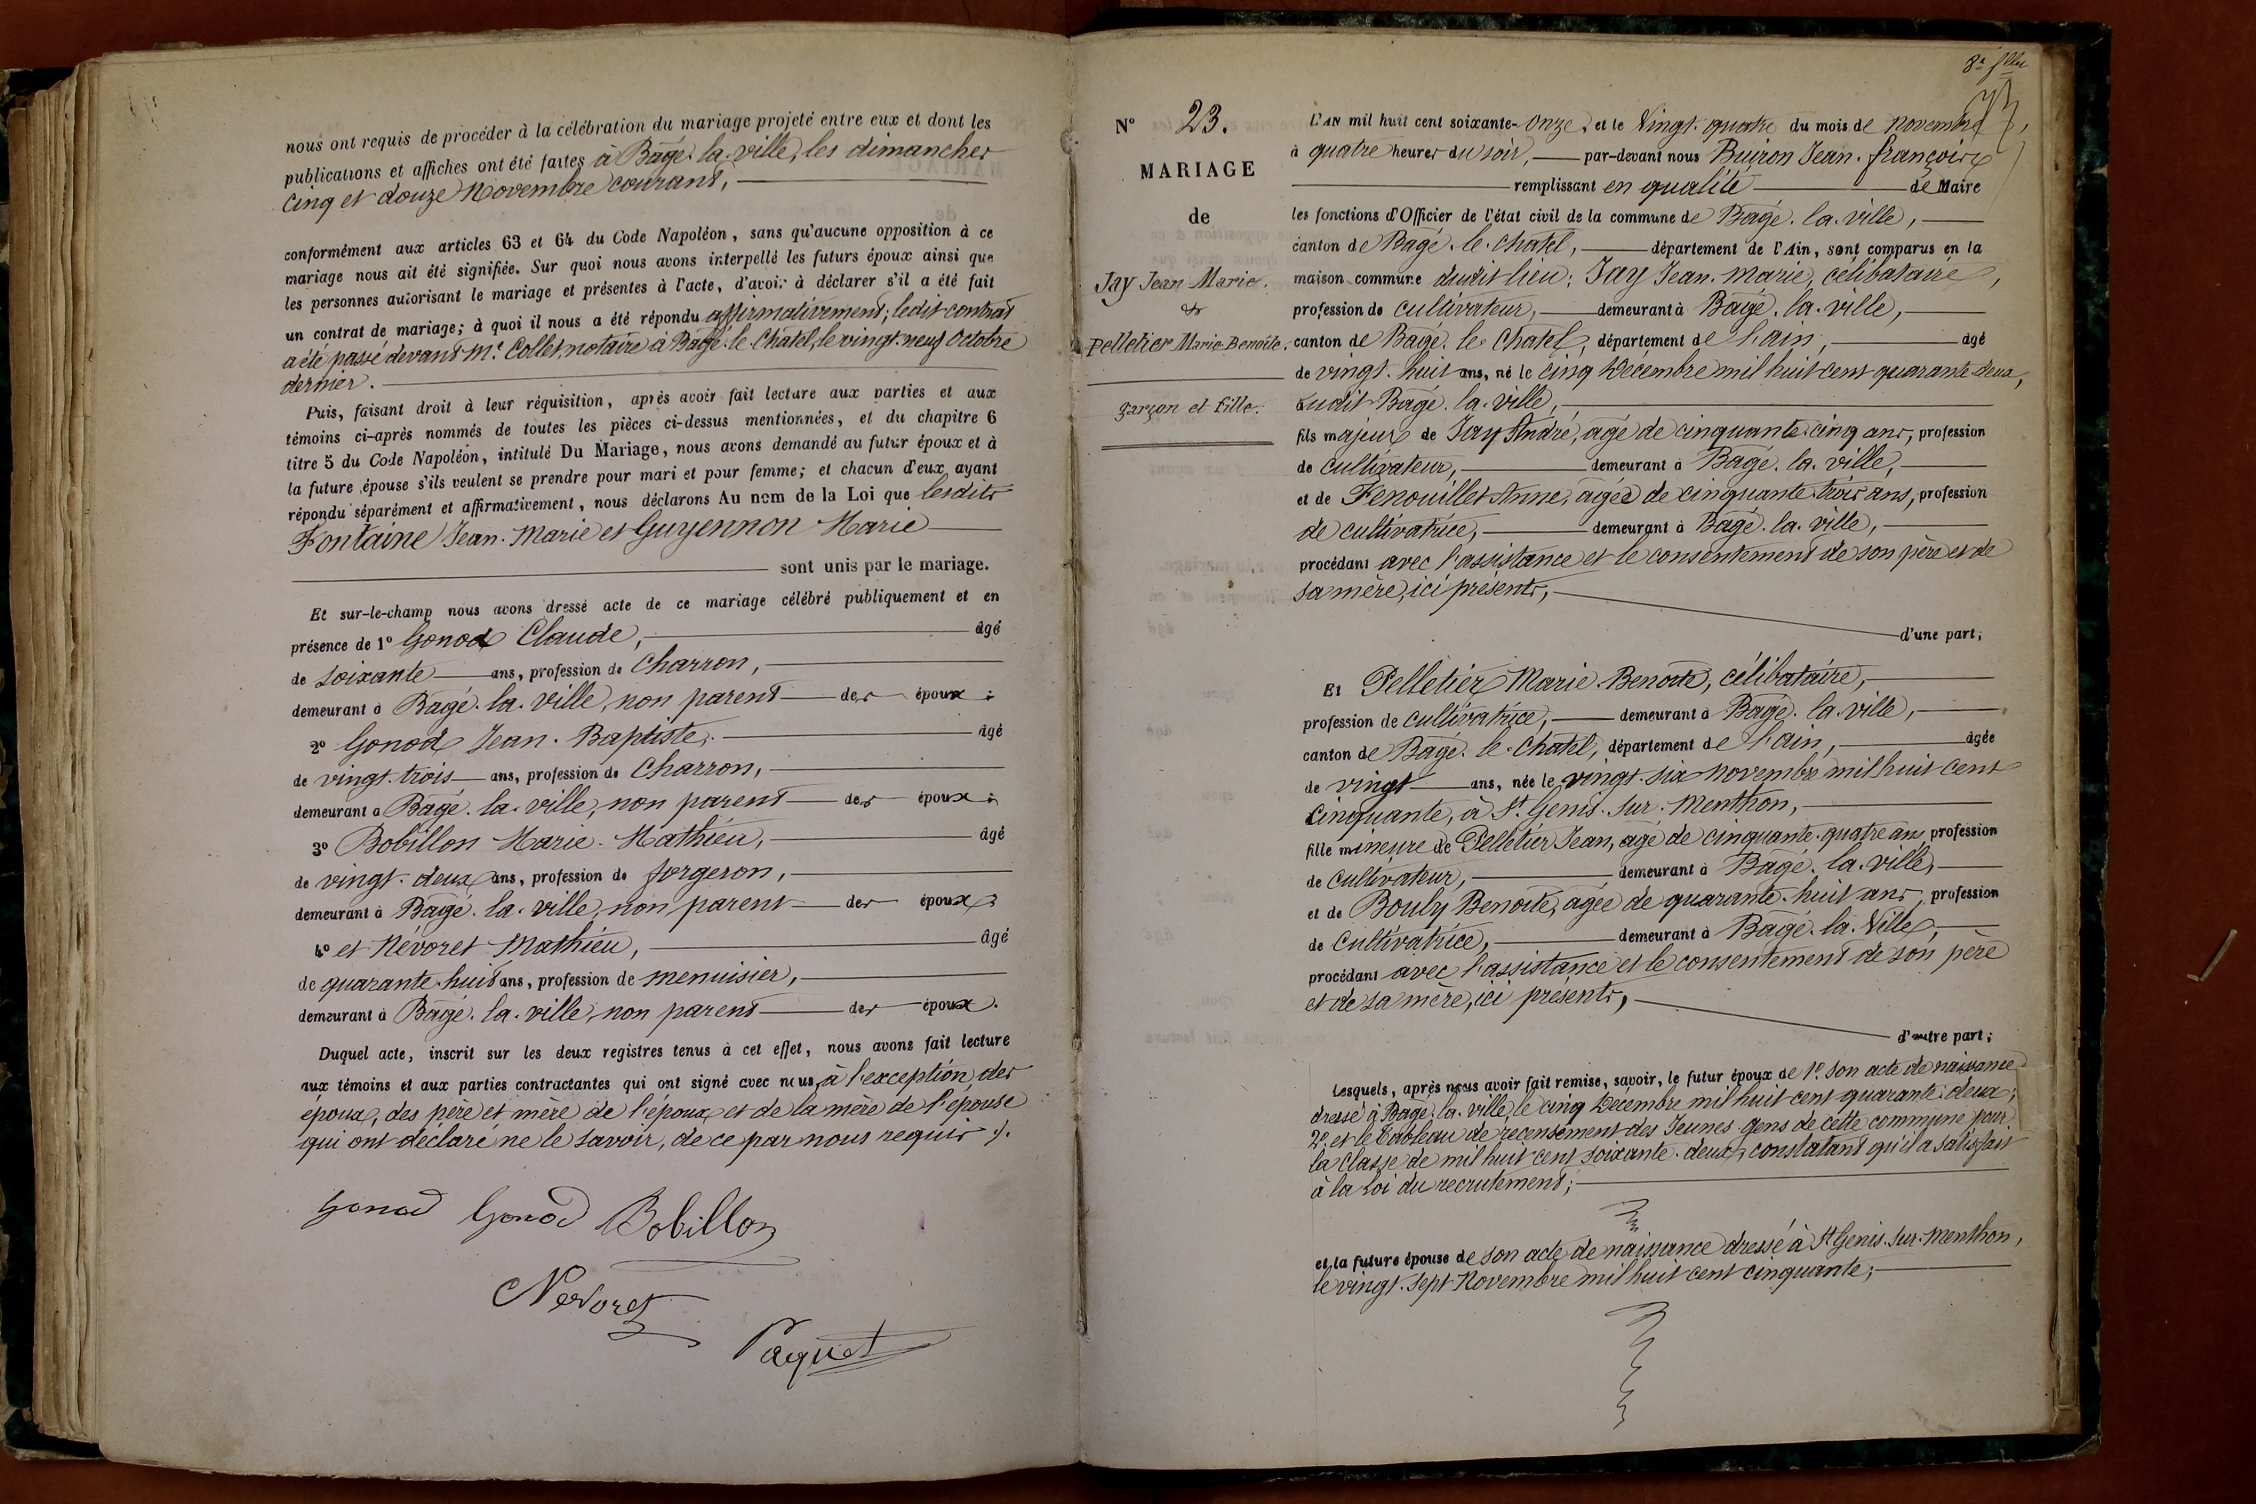 nous ont requis de procéder à la célébration du mariage projeté entre eux et dont les
publications et affiches ont été faites à Bâgé-la-ville, les dimanches
cinq et douze Novembre courant,
conformément aux articles 63 et 64 du Code Napoléon, sans qu'aucune opposition à ce
mariage nous ait été signifiée. Sur quoi nous avons interpellé les futurs époux ainsi que
les personnes autorisant le mariage et présentes à l'acte, d'avoir à déclarer s'il a été fait
un contrat de mariage; à quoi il nous a été répondu affirmativement; ledit contrat
a été passé devant Me Collet, notaire à Bâgé-le-Châtel, le vingt-neuf Octobre
dernier.
Puis, faisant droit à leur réquisition, après avoir fait lecture aux parties et aux
témoins ci-après nommés de toutes les pièces ci-dessus mentionnées, et du chapitre 6
titre 5 du Code Napoléon, intitulé Du Mariage, nous avons demandé au futur époux et à
la future épouse s'ils veulent se prendre pour mari et pour femme; et chacun d'eux ayant
répondu séparément et affirmativement, nous déclarons Au nom de la Loi que lesdits
Fontaine Jean-Marie et Guyennon Marie
sont unis par le mariage.
Et sur-le-champ nous avons dressé acte de ce mariage célébré publiquement et en
présence de 1º Gonod Claude, âgé
de soixante ans, profession de Charron,
demeurant à Bâgé-la-ville, non parent des époux;
2º Gonod Jean-Baptiste, âgé
de vingt-trois ans, profession de Charron,
demeurant à Bâgé-la-ville, non parent des époux;
3º Bobillon Marie-Mathieu, âgé
de vingt-deux ans, profession de forgeron,
demeurant à Bâgé-la-ville, non parent des époux;
4º et Névoret Mathieu, âgé
de quarante-huit ans, profession de menuisier,
demeurant à Bâgé-la-ville, non parent des époux.
Duquel acte, inscrit sur les deux registres tenus à cet effet, nous avons fait lecture
aux témoins et aux parties contractantes qui ont signé avec nous, à l'exception des
époux, des père et mère de l'époux et de la mère de l'épouse
qui ont déclaré ne le savoir, de ce par nous requis.
Gonod Gonod Bobillon
Nevoret
Paquet
8e flle
Nº 23.
MARIAGE
de
Jay Jean Marie.
&
Pelletier Marie-Benoîte.
garçon et fille.
L'AN mil huit cent soixante-onze, et le Vingt-quatre du mois de novembre,
à quatre heures du soir, par-devant nous Buiron Jean-françois
remplissant en qualité de Maire
les fonctions d'Officier de l'état civil de la commune de Bâgé-la-ville,
canton de Bâgé-le-Châtel, département de l'Ain, sont comparus en la
maison commune dudit lieu: Jay Jean-Marie, célibataire,
profession de cultivateur, demeurant à Bâgé-la-ville,
canton de Bâgé-le-Châtel, département de l'ain, âgé
de vingt-huit ans, né le cinq Décembre mil huit cent quarante-deux,
audit Bâgé-la-ville,
fils majeur de Jay André, âgé de cinquante-cinq ans, profession
de cultivateur, demeurant à Bâgé-la-ville,
et de Fenouillet Anne, âgée de cinquante-trois ans, profession
de cultivatrice, demeurant à Bâgé-la-ville,
procédant avec l'assistance et le consentement de son père et de
sa mère, ici présents,
d'une part;
Et Pelletier Marie-Benoîte, célibataire,
profession de cultivatrice, demeurant à Bâgé-la-ville,
canton de Bâgé-le-Châtel, département de l'ain, âgée
de vingt ans, née le vingt-six novembre mil huit cent
cinquante, à St Genis-sur-Menthon,
fille mineure de Pelletier Jean, âgé de cinquante-quatre ans, profession
de cultivateur, demeurant à Bâgé-la-ville,
et de Bouly Benoîte, âgée de quarante-huit ans, profession
de cultivatrice, demeurant à Bâgé-la-Ville,
procédant avec l'assistance et le consentement de son père
et de sa mère, ici présents,
d'autre part;
Lesquels, après nous avoir fait remise, savoir, le futur époux de 1º son acte de naissance
dressé à Bâgé-la-ville, le cinq Décembre mil huit cent quarante-deux;
2º et le Tableau de recensement des Jeunes gens de cette commune pour
la Classe de mil huit cent soixante-deux, constatant qu'il a satisfait
à la Loi du recrutement;
et la future épouse de son acte de naissance dressé à St Genis-sur-Menthon,
le vingt-sept Novembre mil huit cent cinquante;